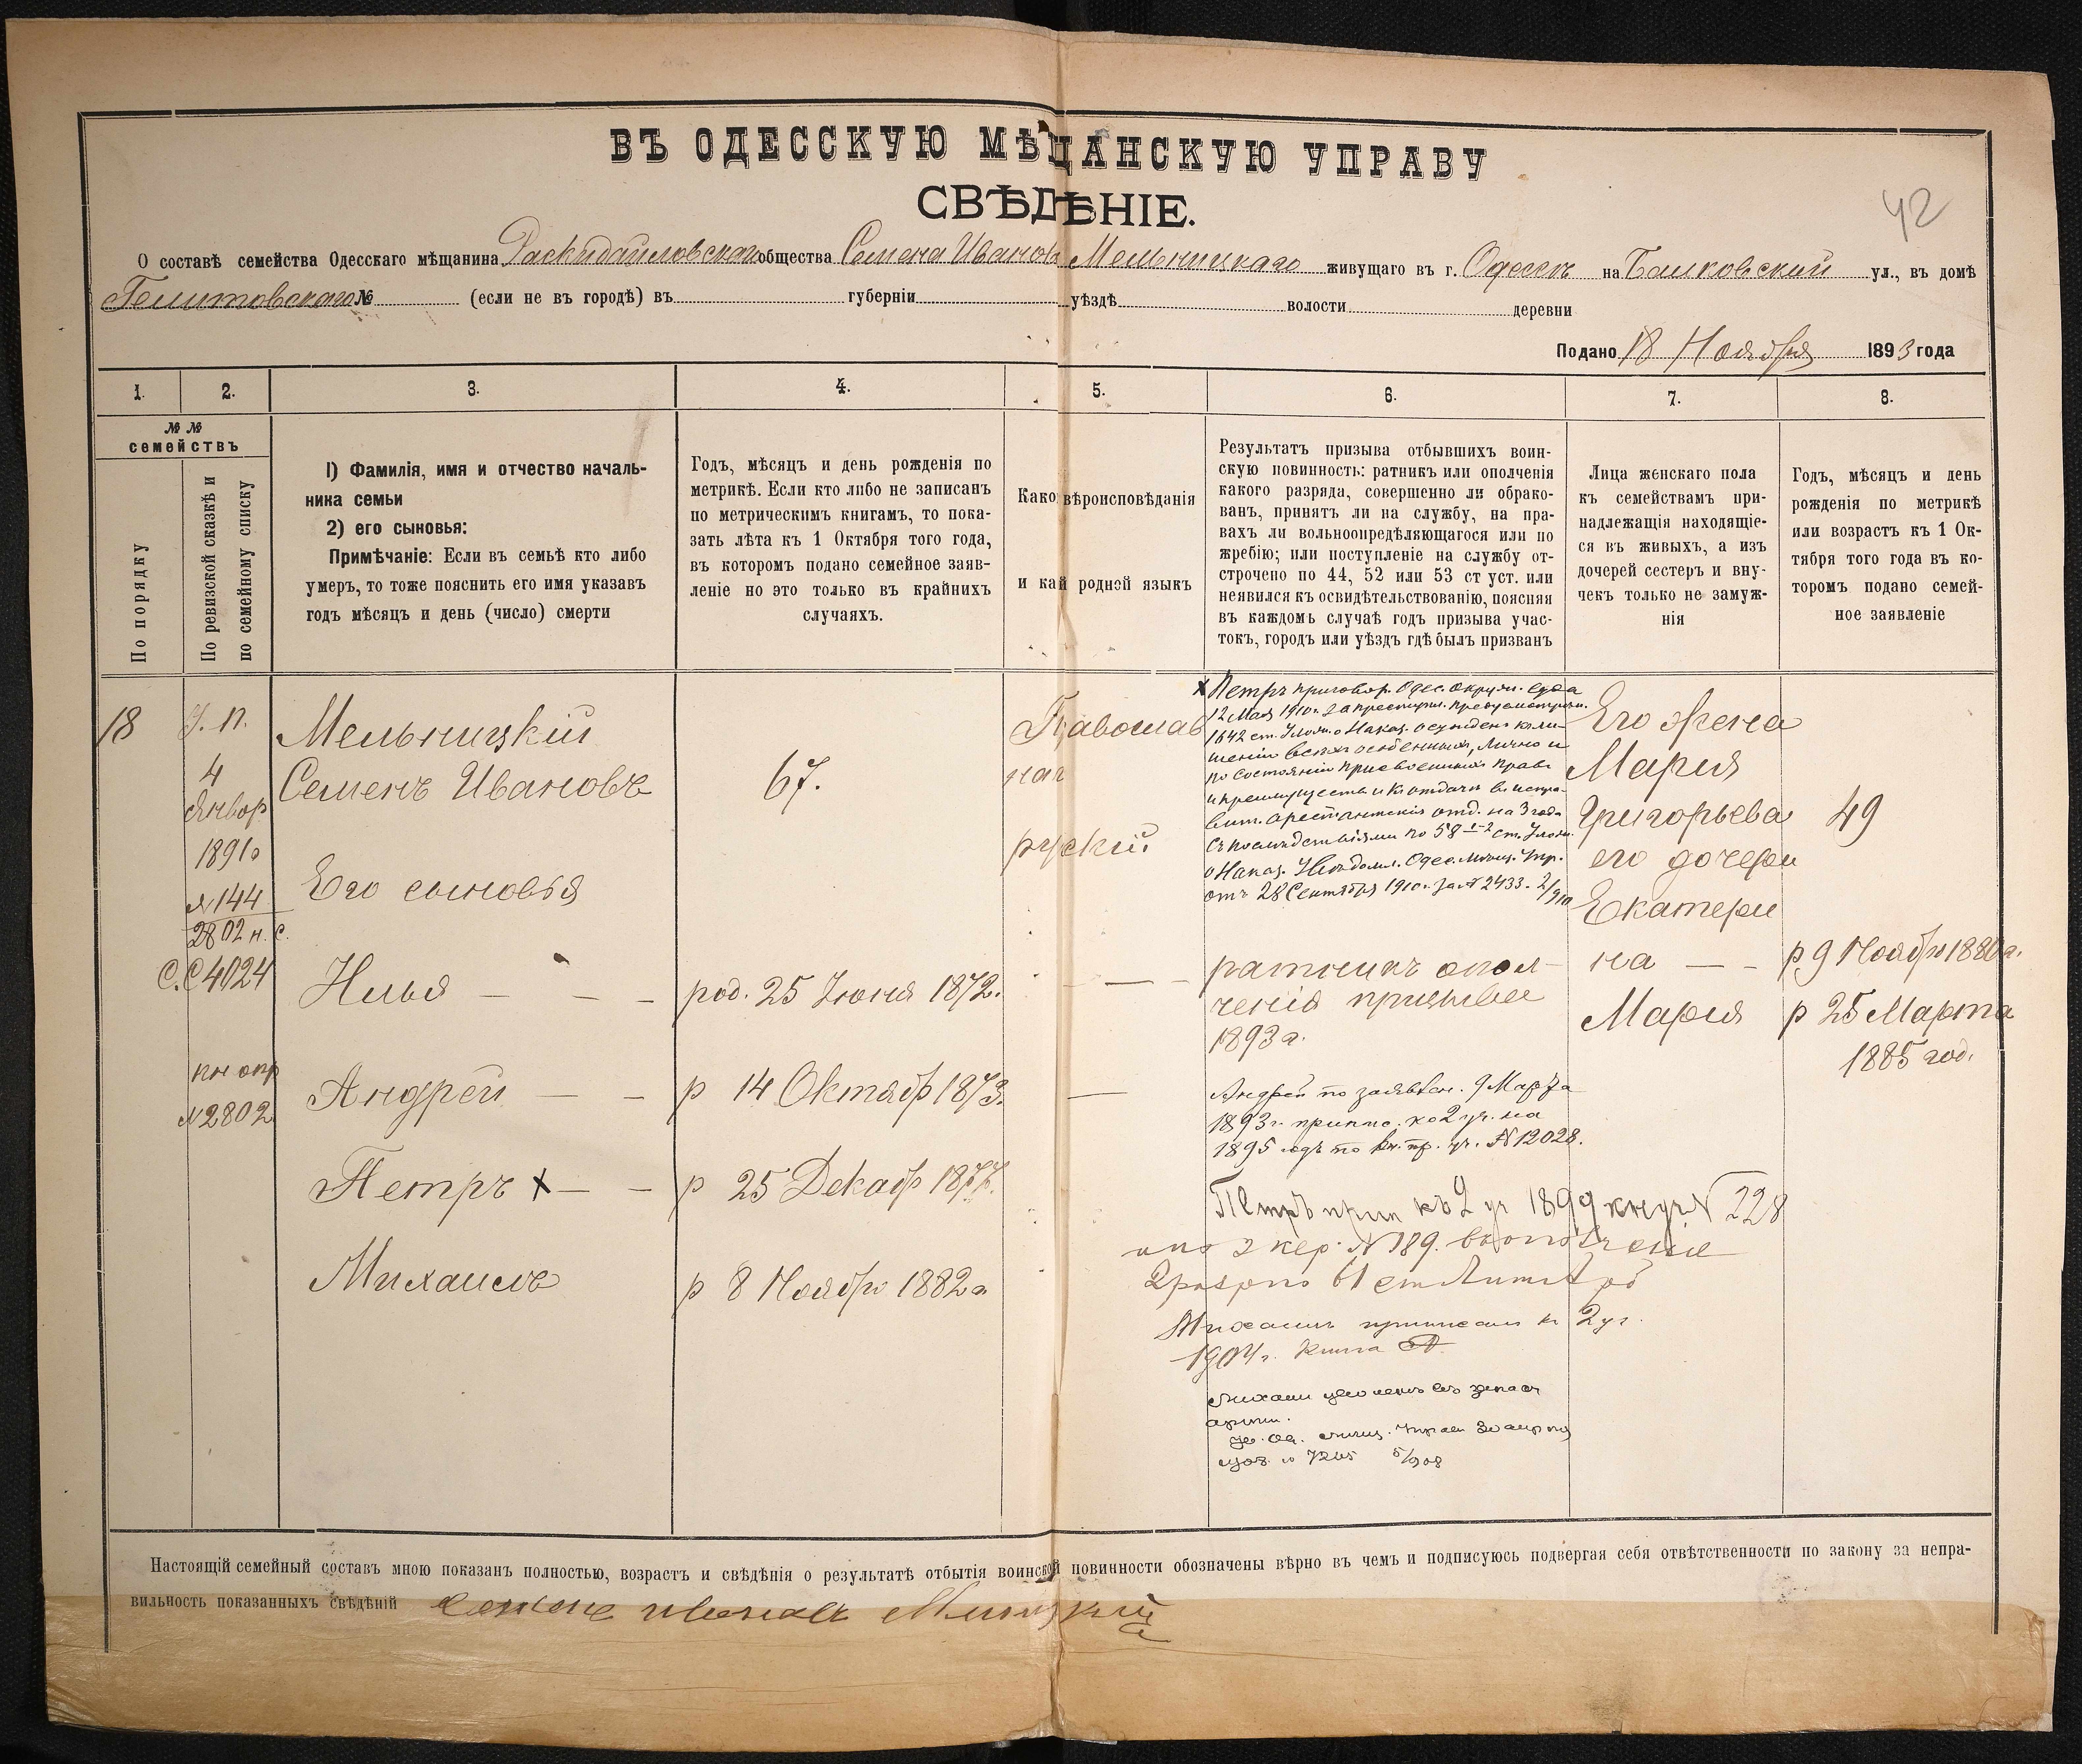 ВЪ ОДЕССКУЮ МѢЩАНСКУЮ УПРАВУ
СВѢДѢНІЕ.
42
О составѣ семейства Одесскаго мѣщанина Раскидайловскаго общества Семена Иванова Мельницкаго живущаго въ г. Одессѣ на Балковской ул., въ домѣ
№ (если не въ городѣ) въ губерніи уѣздѣ волости деревни
Подано 18 Ноября 1893 года
1. 2. 3. 4. 5. 6. 7. 8.
№№
семействъ
По порядку
По ревизской сказкѣ и
по семейному списку
1) Фамилія, имя и отчество началь-
ника семьи
2) его сыновья:
Примѣчаніе: Если въ семьѣ кто либо
умеръ, то тоже пояснить его имя указавъ
годъ мѣсяцъ и день (число) смерти
Годъ, мѣсяцъ и день рожденія по
метрикѣ. Если кто либо не записанъ
по метрическимъ книгамъ, то пока-
зать лѣта къ 1 Октября того года,
въ которомъ подано семейное заяв-
леніе но это только въ крайнихъ
случаяхъ.
Како вѣроисповѣданія
и кай родной языкъ
Результатъ призыва отбывшихъ воин-
скую повинность: ратникъ или ополченія
какого разряда, совершенно ли обрако-
ванъ, принятъ ли на службу, на пра-
вахъ ли вольноопредѣляющагося или по
жребію; или поступленіе на службу от-
строчено по 44, 52 или 53 ст уст. или
неявился къ освидѣтельствованію, поясняя
въ каждомъ случаѣ годъ призыва учас-
токъ, городъ или уѣздъ гдѣ былъ призванъ
Лица женскаго пола
къ семействамъ при-
надлежащія находящіе-
ся въ живыхъ, а изъ
дочерей сестеръ и вну-
чекъ только не замуж-
нія
Годъ, мѣсяцъ и день
рожденія по метрикѣ
или возрастъ къ 1 Ок-
тября того года въ ко-
торомъ подано семей-
ное заявленіе
18
4
Январ
1891г
№144
2802 н. с.
С.С 4024
кн опр
№2802
Мельницкій
Семенъ Ивановъ
Его сыновья
Илья — — —
Андрей — —
Петръ х — —
Михаилъ
67.
род. 25 Іюня 1872.
р 14 Октябр 1873.
р 25 Декабр 1877.
р 8 Ноябр 1882г
Православ
ная
рускій
х Петръ приговор. Одес. окружн. суда
12 Мая 1910г. за преступл. предусмотрѣн.
1642 ст. Улож. о Наказ. осужденъ къ ли-
шенію всѣхъ особенныхъ, лично и
по состоянію присвоенныхъ правъ
и преимуществъ и къ отдачѣ въ испра-
вит. арестантскія отд. на 3 года
съ послѣдствіями по 58 1-2 ст. Улож.
о Наказ. Увѣдомл. Одес. Мѣщ. Упр.
отъ 28 Сентября 1910г. за № 2433.
ратникъ опол-
ченія призывъ
1893г.
Андрей по заявлен. 9 Марта
1893г. припис. ко 2 уч. на
1895 годъ по кн. пр. уч. №12028.
Петръ прип къ 2 уч 1899 кн уч № 228
Михаилъ приписанъ къ 2 уч.
1904г. книга
Его жена
Марія
Григорьева
его дочери
Екатери
на — —
Марія
49
р 9 Ноябр 1880г.
р 25 Марта
1885 год.
Настоящій семейный составъ мною показанъ полностью, возрастъ и свѣдѣнія о результатѣ отбытія воинской повинности обозначены вѣрно въ чемъ и подписуюсь подвергая себя отвѣтственности по закону за непра-
вильность показанныхъ свѣдѣній